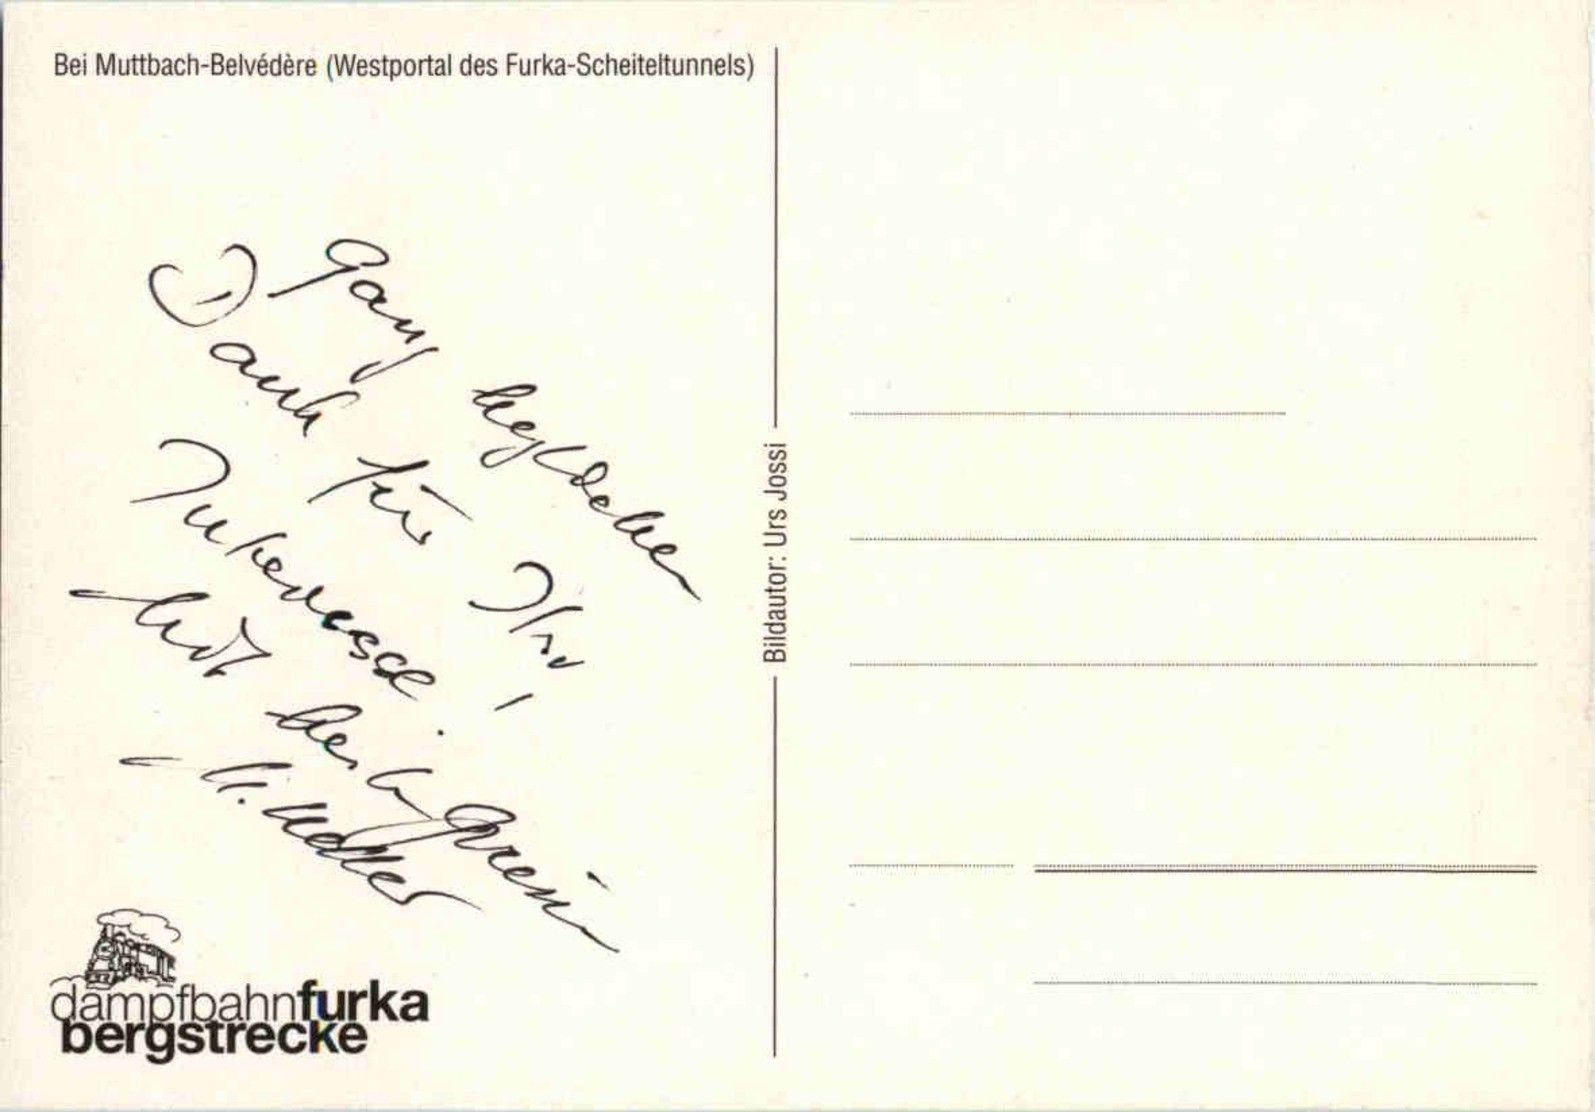 Bei Muttbach-Belvédère (Westportal des Furka-Scheiteltunnels)
Ganz herzlichen
Dank für Ihr
Interesse.
Mit freundl. Grüssen
Bildautor: Urs Jossi
dampfbahnfurka
bergstrecke